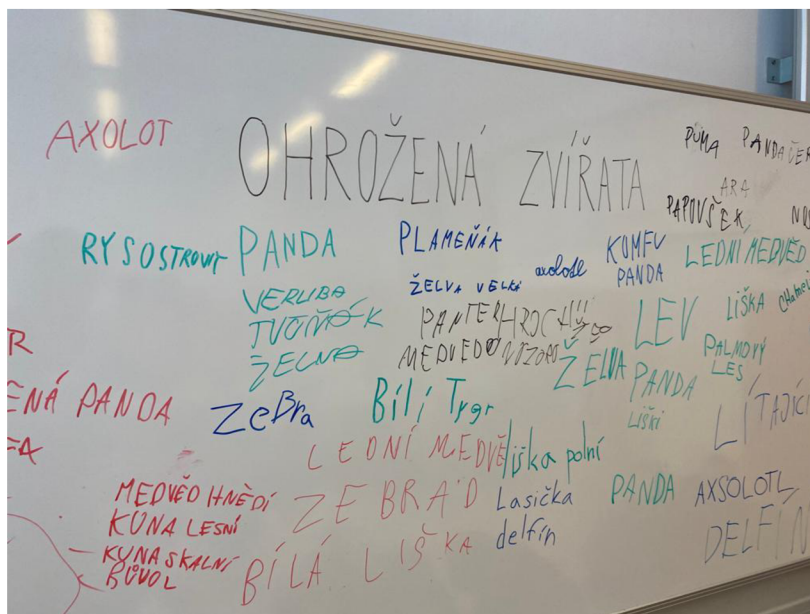 AXOLOT
OHROŽENÁ ZVÍŘATA
PUMA
PANDA ČER
ARA
PAPOUŠEK
RYS OSTROVIT
PANDA
PLAMEŇÁK
KUMFU
PANDA
LEDNI MEDVĚD
ŽELVA VELKÁ
axolotl
VERLIBA
TVOŇÁK
ŽELVA
PANTER
HROCH!!!
MEDVED
LEV
LIŠKA
PALMOVÝ
LES
ŽELVA
PANDA
LIŠKI
R
ENÁ PANDA
FA
ZeBra
Bílí Tygr
LÍTAJÍCÍ
LEDNÍ MEDVĚ
liška polní
MEDVĚD HNĚDÍ
KUNA LESNÍ
KUNA SKALNÍ
BŮVOL
ZEBRA'D
Lasička
delfín
PANDA
AXSOLOTL
DELFÍN
BÍLÁ LIŠKA